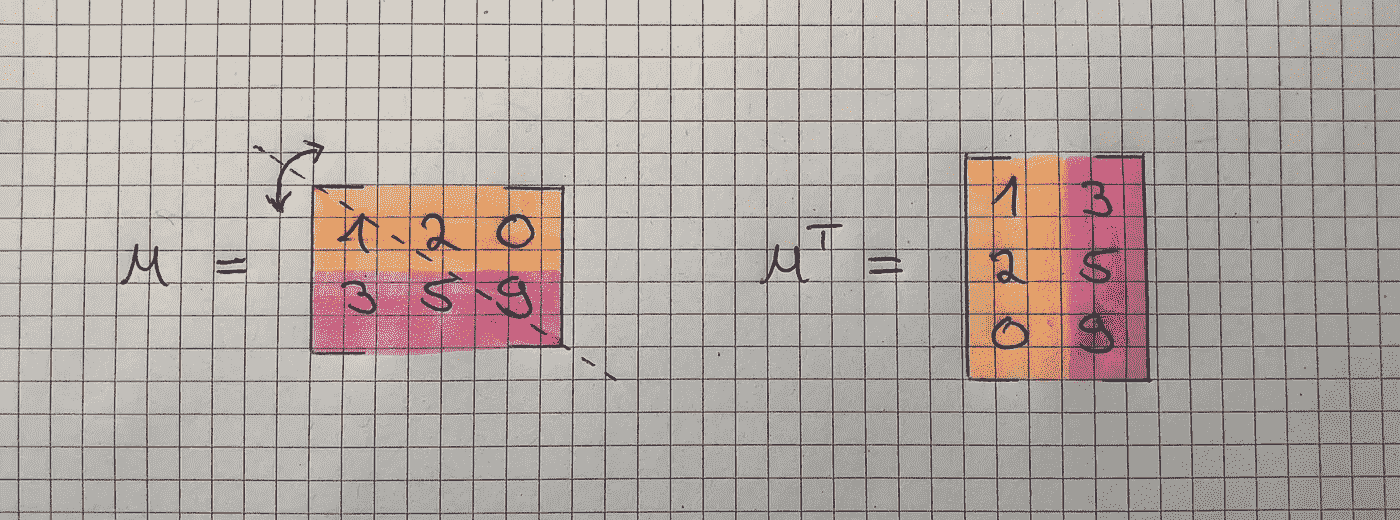 M = [1 2 0
3 5 9]
M^T = [1 3
2 5
0 9]